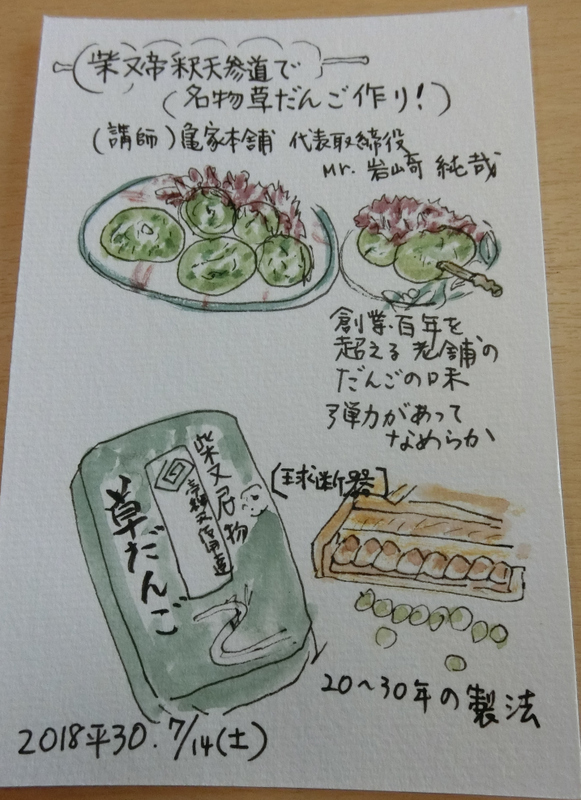 柴又帝釈天参道で
(名物草だんご作り!)
(講師)亀家本舗 代表取締役
Mr. 岩崎 純哉
創業百年を
超える老舗の
だんごの味
弾力があって
なめらか
柴又名物
草だんご
[球断器]
20〜30年の製法
2018平30.7/14(土)